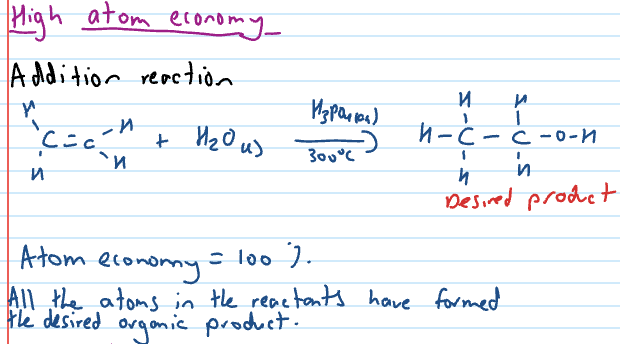 High atom economy
Addition reaction
H H H
C=C-H + H2O(l) H3PO4(aq) H-C-C-O-H
H H 300°C H H
Desired product
Atom economy = 100 %.
All the atoms in the reactants have formed
the desired organic product.